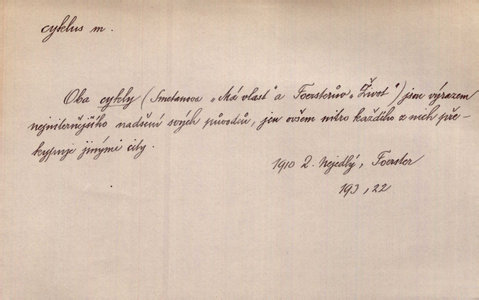 cyklus m.
Oba cykly (Smetanova „Má vlast“ a Foersterův „Život“) jsou výrazem
nejniternějšího nadšení svých původců, jen ovšem nitro každého z nich pře-
kypuje jinými city.
1910 Z. Nejedlý, Foerster
193, 22